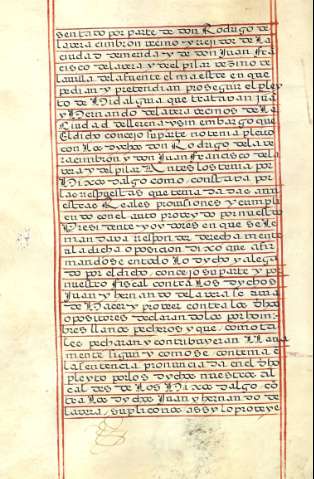 sentado por parte de don Rodrigo de
la vera cimbron vecino y rejidor de la
ciudad de merida y de don Juan fra
cisco de la vera y del pilar vezino de
la villa de la fuente el maestre en que
pedian y pretendian proseguir el pley
to de Hidalguia que trataban jua
y Hernando de la vera vecinos de la
Ciudad de llerena y sin embargo que
El dicho concejo su parte no tenia pleito
con Los dichos don Rodrigo de la ve
ra cimbron y don Juan francisco de la
vera y del pilar antes los tenia por
Hixosdalgo como constaba por
las respuestas que tenia dadas a nu
estras Reales provisiones y cumpli
endo con el auto proveydo por nuestro
Presidente y oydores en que se le
mandava responder derechamente
a la dicha oposicion dixo que afir
mandose en todo lo dicho y alega
do por el dicho concejo su parte y por
nuestro fiscal contra Los dichos
Juan y hernando de la vera se avia
de Hacer y proveer contra los dhos
opositores declarandolos por hom
bres llanos pecheros y que como ta
les pecharan y contribuyeran LLana
mente sigun y como se contenia e
la sentencia pronunciada en el dho
pleyto por los dichos nuestros al
caldes de Los Hixosdalgo co
tra Los dichos Juan y hernando de
la vera, suplico nos assy lo proveye